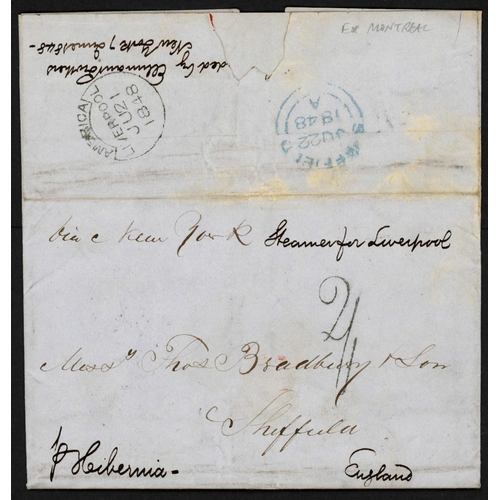 Ex MONTREAL
ded by Ellimans Brothers
New York 7 June 1848-
AMERICA
LIVERPOOL
JU 21
1848
SHEFFIELD
JU 22
1848
A
via New York Steamer for Liverpool
2/
Messrs Thos Bradbury & Son
Sheffield
p Hibernia -
England